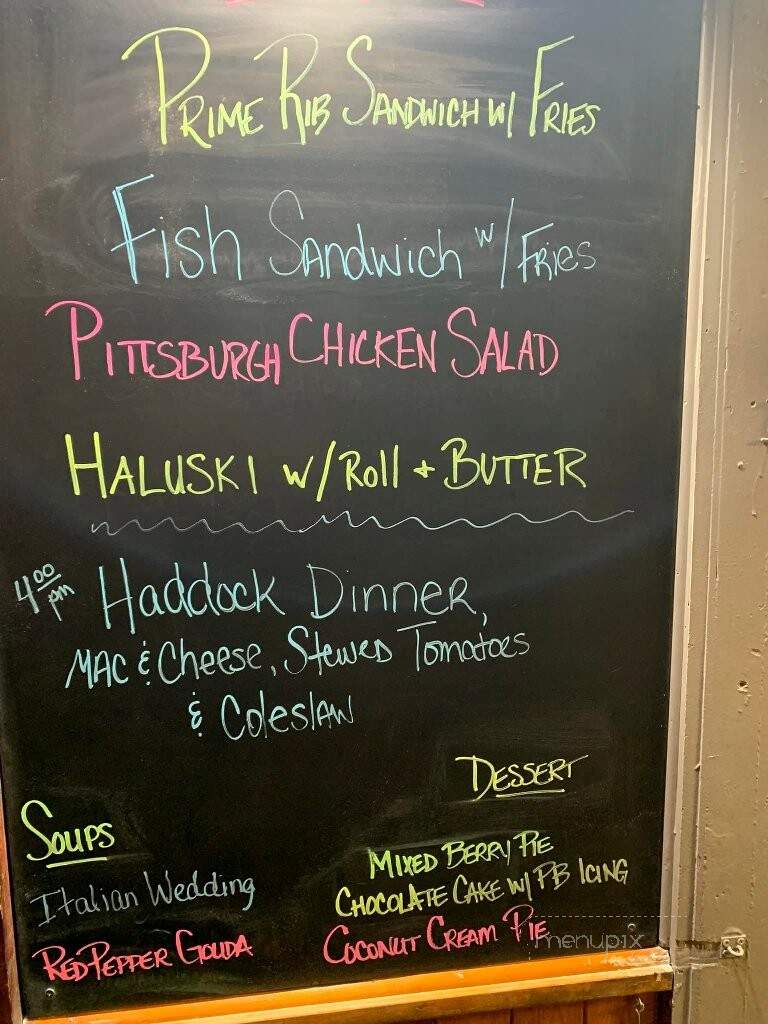 PRIME RIB SANDWICH W/ FRIES
Fish SANDWICH w/ FRIES
PITTSBURGH CHICKEN SALAD
HALUSKI w/ Roll + BUTTER
4:00 pm Haddock DINNER,
MAC & Cheese, Stewed Tomatoes
& Coleslaw
DESSERT
SOUPS
MIXED BERRY PIE
Italian Wedding
CHOCOLATE CAKE W/ PB ICING
RED PEPPER GOUDA
COCONUT CREAM PIE
menupix